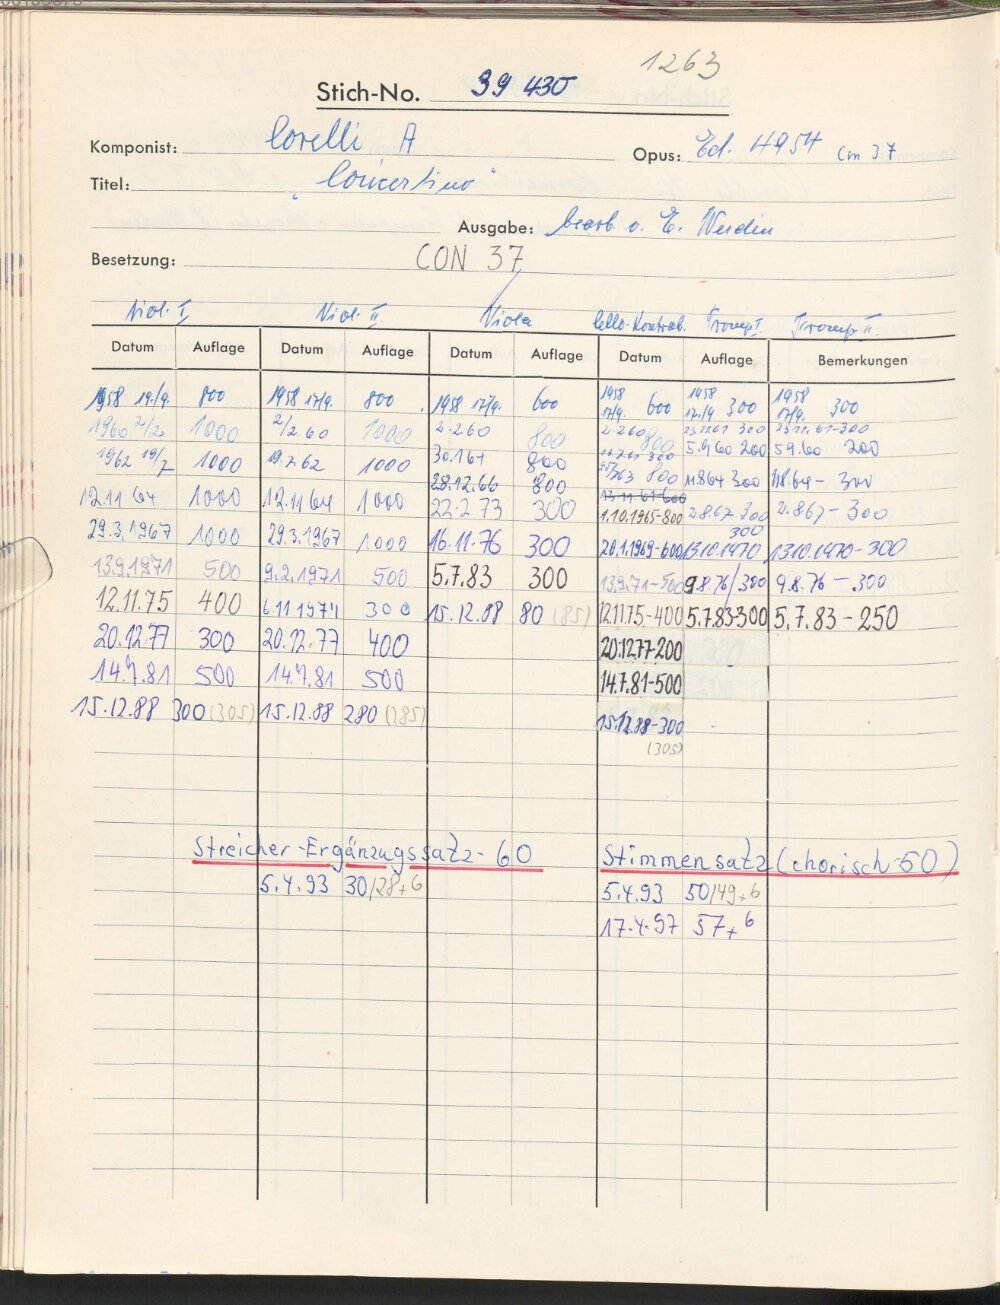 1263
Stich-No. 39 430
Komponist: Corelli A Opus: Ed. 4954 Con 37
Titel: "Concertino"
Ausgabe: bearb. v. E. Werdin
Besetzung: CON 37
Viol. I Viol. II Viola Cello-Kontrab. Tromp I. Tromp II.
Datum Auflage Datum Auflage Datum Auflage Datum Auflage Bemerkungen
1958 19./9. 800 1958 17/9. 800 1958 17/9. 600 1958 17/9. 600 1958 17./9 300 1958 17/9. 300
1960 2/2 1000 2/2 60 1000 2.260 800 2.260 800 23.11.61 300 23.11.61-300
1962 19/7 1000 19.7.62 1000 30.1.61 800 300 5.9.60 200 5 9.60 200
12.11 64 1000 12.11 64 1000 28.12.66 800 800 11.8.64 300 11.8.64 - 300
29.3.1967 1000 29.3.1967 1000 22.2 73 300 13 11 61-600
1.10.1965-800 2.8.67 300 2.8.67 - 300
16.11.76 300 20.1.1969-600 13.10.1970 300 13.10.1970-300
13.9.1971 500 9.2.1971 500 5.7.83 300 13.9.71-500 9.8.76/300 9.8.76 - 300
12.11.75 400 6.11.1974 300 15.12.88 80 (85) 12.11.75-400 5.7.83-300 5.7.83-250
20.12.77 300 20.12.77 400 20.12.77-200
14.7.81 500 14.7.81 500 14.7.81-500
15.12.88 300 (305) 15.12.88 280 (285) 15.12.88-300
(305)
Streicher-Ergänzugssatz-60 Stimmensatz (chorisch-50)
5.4.93 30/28+6 5.4.93 50/49+6
17.4.97 57+6